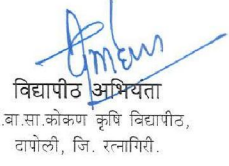 विद्यापीठ अभियंता
.बा.सा.कोकण कृषि विद्यापीठ,
दापोली, जि. रत्नागिरी.